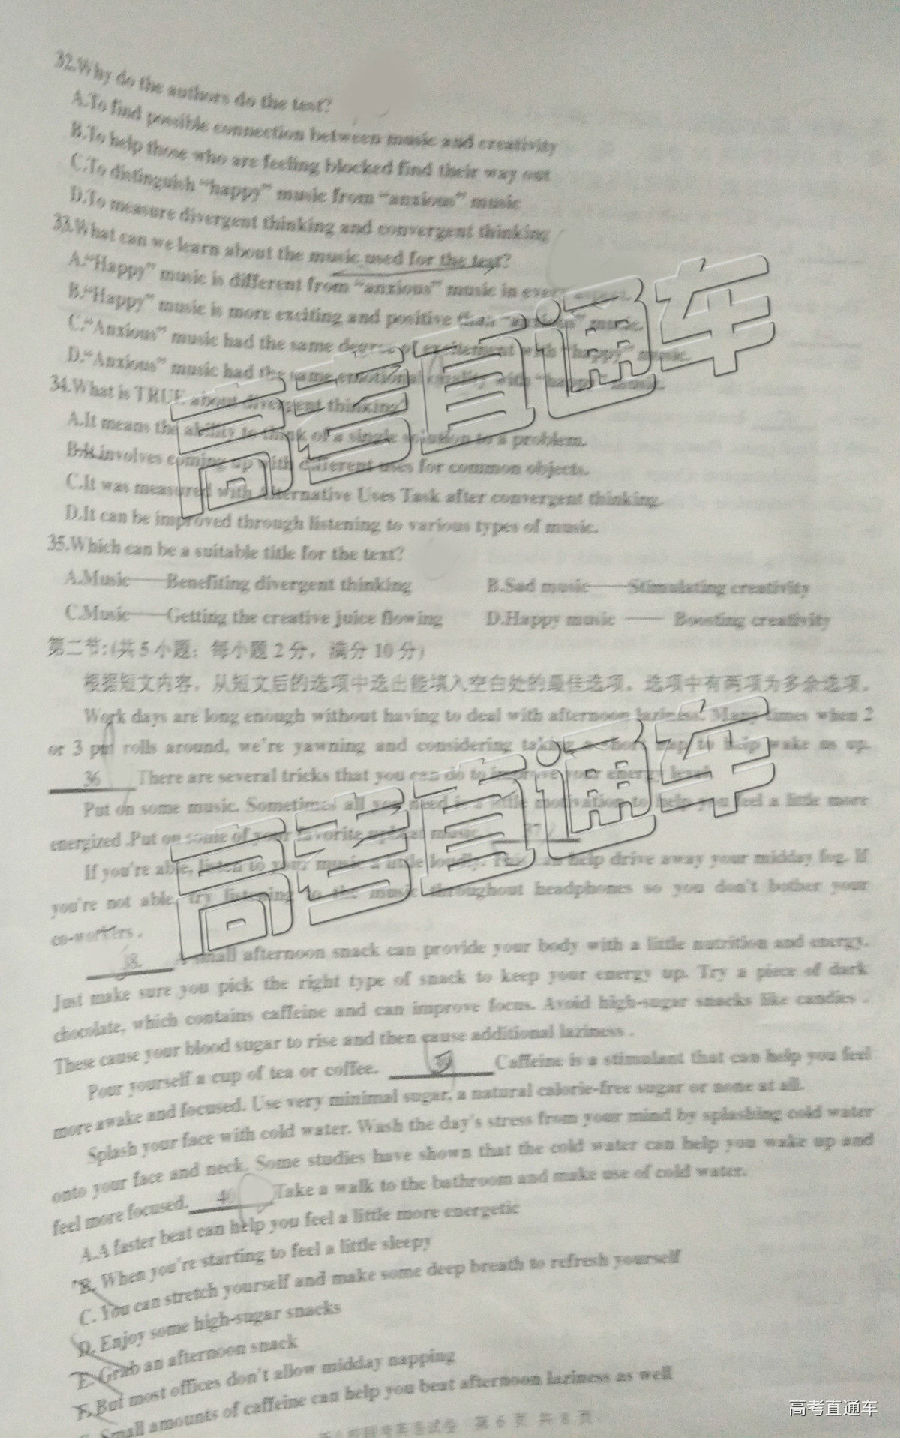 32.Why do the authors do the test?
A.To find possible connection between music and creativity
B.To help those who are feeling blocked find their way out
C.To distinguish "happy" music from "anxious" music
D.To measure divergent thinking and convergent thinking
33.What can we learn about the music used for the test?
A."Happy" music is different from "anxious" music in every
B."Happy" music is more exciting and positive than "anxious" music.
C."Anxious" music had the same degree of excitement with "happy" music.
D."Anxious" music had the same emotional quality with "happy" music.
34.What is TRUE about divergent thinking?
A.It means the ability to think of a single solution to a problem.
B.It involves coming up with different uses for common objects.
C.It was measured with Alternative Uses Task after convergent thinking.
D.It can be improved through listening to various types of music.
35.Which can be a suitable title for the text?
A.Music——Benefiting divergent thinking B.Sad music——Stimulating creativity
C.Music——Getting the creative juice flowing D.Happy music —— Boosting creativity
第二节:(共5小题；每小题2分，满分10分)
根据短文内容，从短文后的选项中选出能填入空白处的最佳选项。选项中有两项为多余选项。
Work days are long enough without having to deal with afternoon laziness. Many times when 2
or 3 pm rolls around, we're yawning and considering taking a short nap to help wake us up.
36 There are several tricks that you can do to improve your energy level.
Put on some music. Sometimes all you need is a little motivation to help you feel a little more
energized .Put on some of your favorite upbeat music. 37
If you're able, listen to your music a little loudly. This can help drive away your midday fog. If
you're not able, try listening to the music throughout headphones so you don't bother your
co-workers .
38. A small afternoon snack can provide your body with a little nutrition and energy.
Just make sure you pick the right type of snack to keep your energy up. Try a piece of dark
chocolate, which contains caffeine and can improve focus. Avoid high-sugar snacks like candies .
These cause your blood sugar to rise and then cause additional laziness .
Pour yourself a cup of tea or coffee. 39 Caffeine is a stimulant that can help you feel
more awake and focused. Use very minimal sugar, a natural calorie-free sugar or none at all.
Splash your face with cold water. Wash the day's stress from your mind by splashing cold water
onto your face and neck. Some studies have shown that the cold water can help you wake up and
feel more focused. 40 Take a walk to the bathroom and make use of cold water.
A.A faster beat can help you feel a little more energetic
B. When you're starting to feel a little sleepy
C. You can stretch yourself and make some deep breath to refresh yourself
D. Enjoy some high-sugar snacks
E. Grab an afternoon snack
F. But most offices don't allow midday napping
Small amounts of caffeine can help you beat afternoon laziness as well
第 6 页 共 8 页
高考直通车
高考直通车
高考直通车